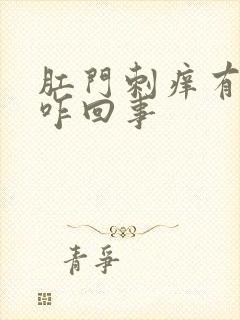 肛門刺痒有
咋回事
青爭